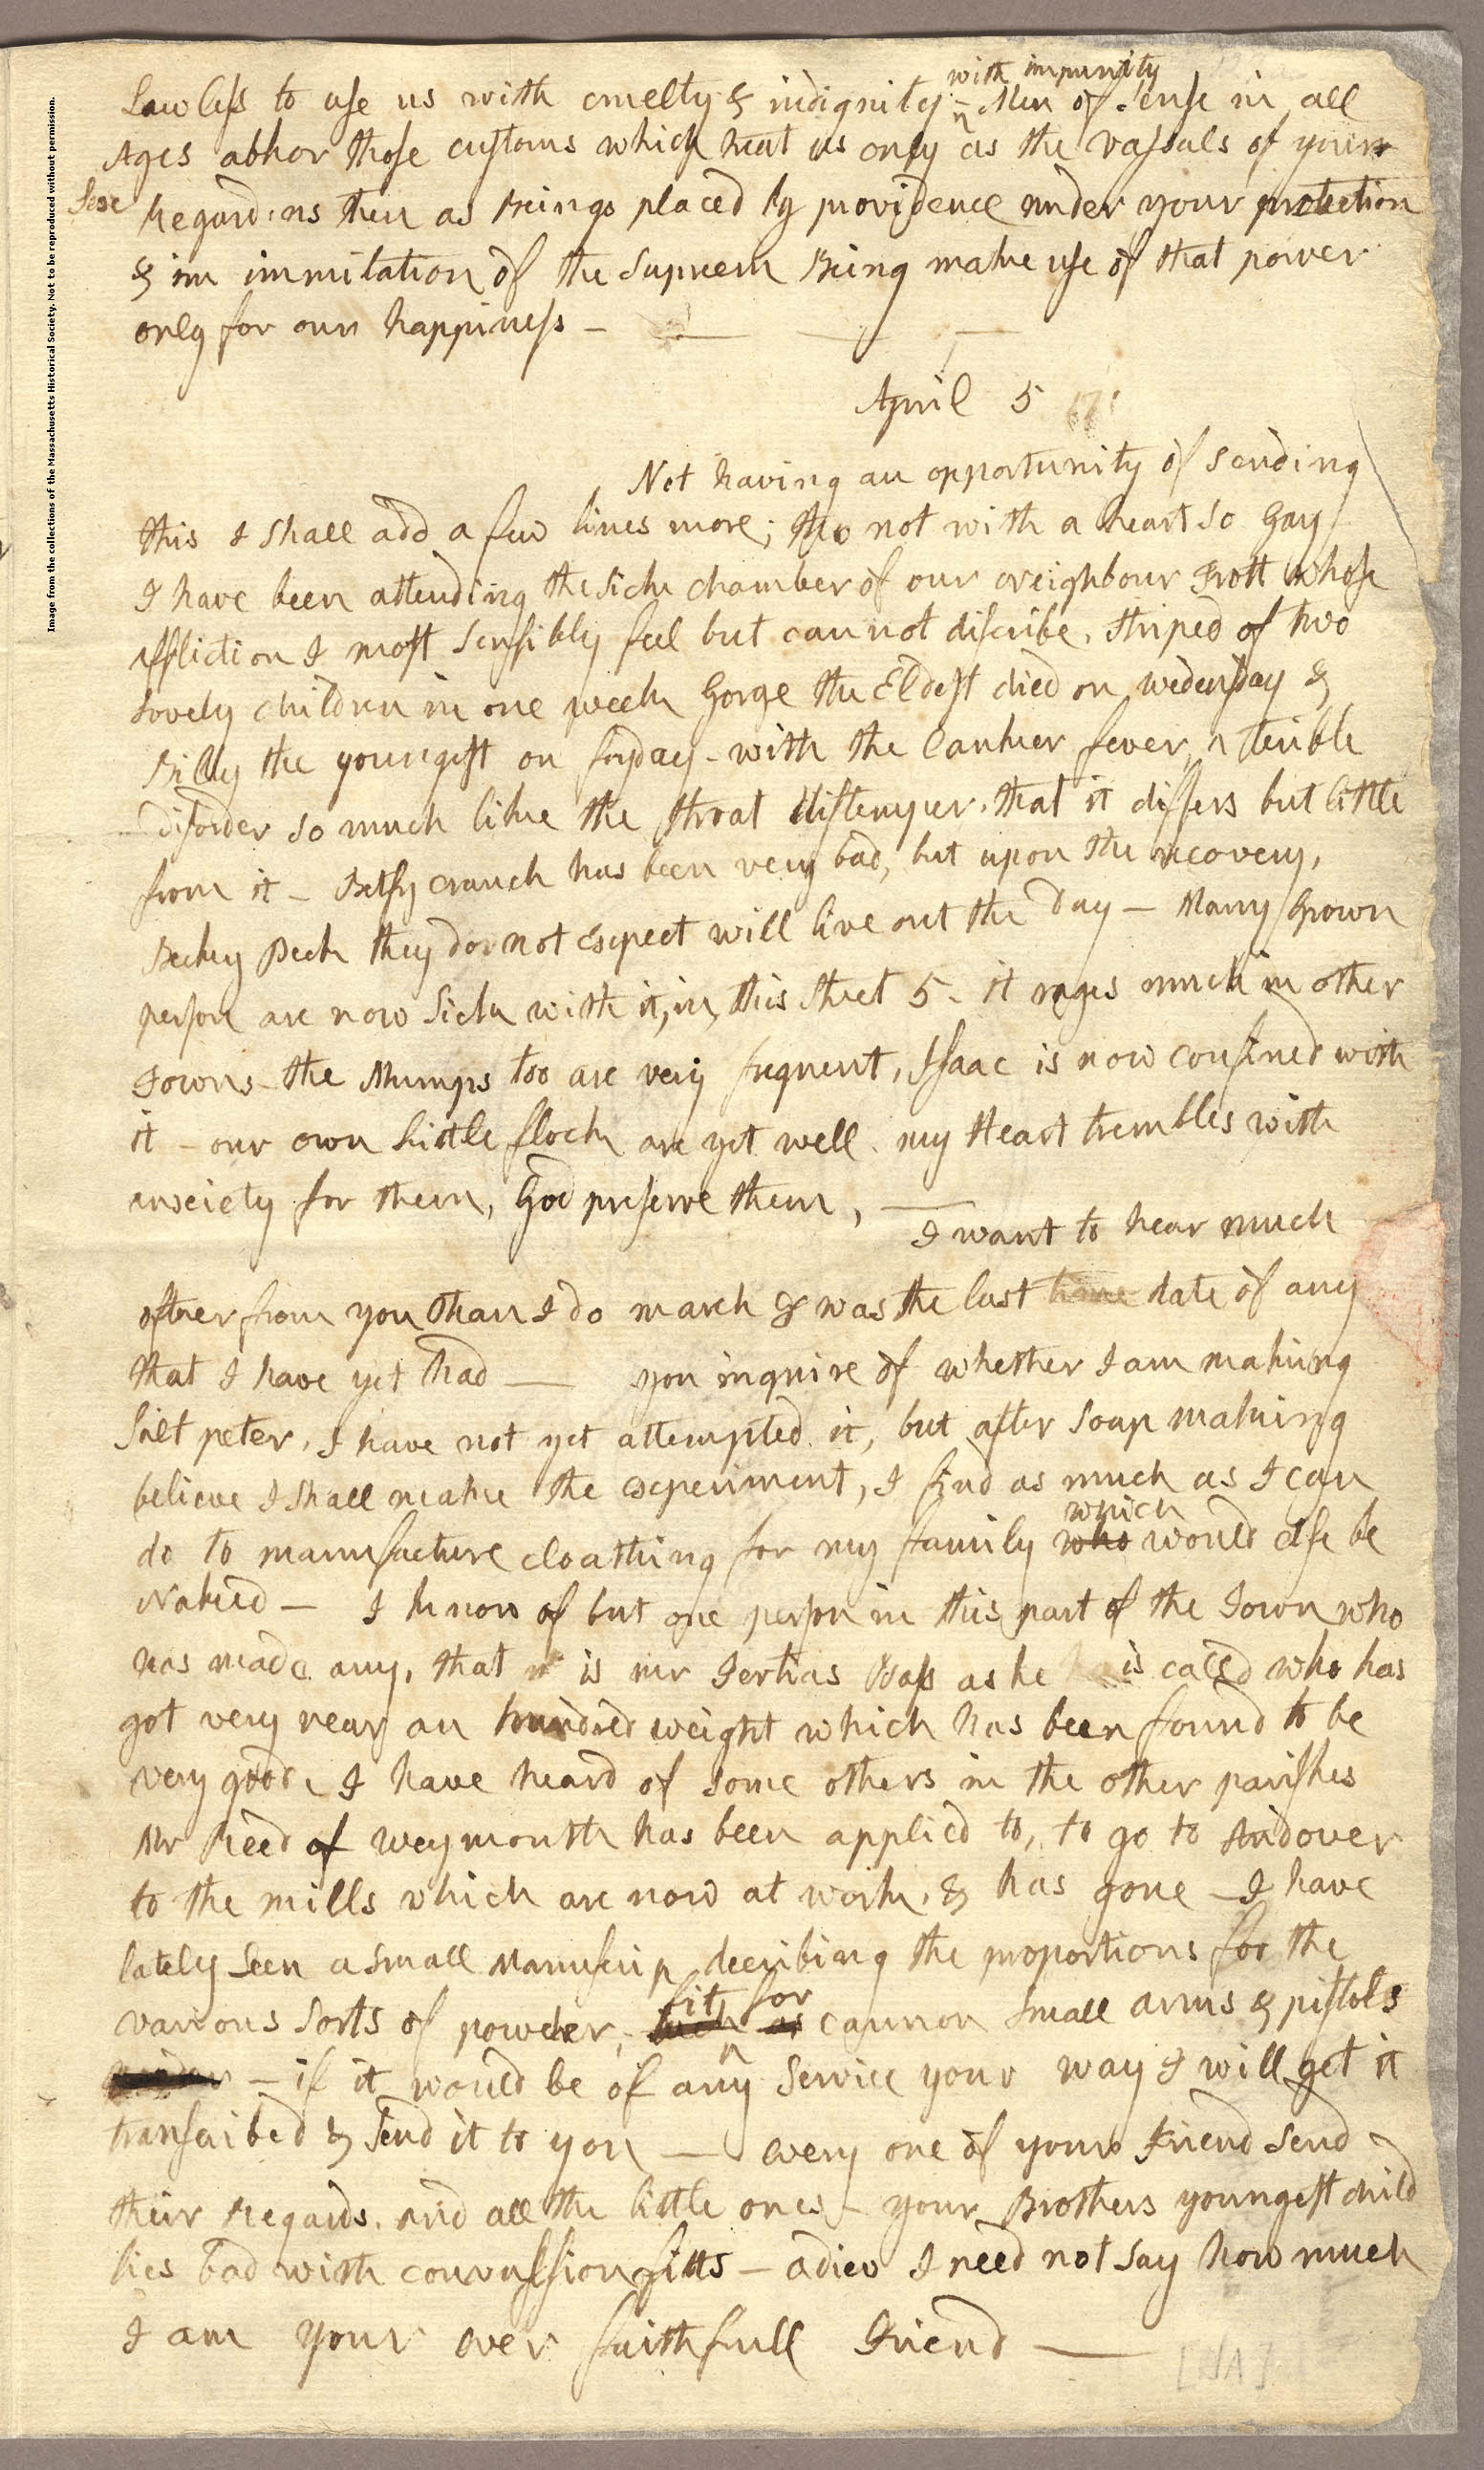 Image from the collections of the Massachusetts Historical Society. Not to be reproduced without permission.
with impunity
Lawless to use us with cruelty & indignity - Men of Sense in all
Ages abhor those customs which treat us only as the vassals of your
Sex
Regard us then as Beings placed by providence under your protection
& in immitation of the Supreem Being make use of that power
only for our happiness -
April 5
Not having an opportunity of sending
this I shall add a few lines more; tho not with a heart so gay
I have been attending the sick chamber of our neighbour Trott whose
affliction I most sensibly feel but cannot discribe, striped of two
lovely children in one week Gorge the Eldest died on wedensday &
Billy the youngest on fryday - with the Canker fever, a terible
disorder so much like the throat distemper, that it differs but little
from it - Betsy cranch has been very bad, but upon the recovery,
Becky Peck they do not expect will live out the day - Many grown
person are now sick with it, in this street 5 - it rages much in other
Towns - the Mumps too are very frequent, Isaac is now confined with
it - our own little flock are yet well. my Heart trembles with
anxiety for them, God preserve them,
I want to hear much
oftner from you than I do march 8 was the last time date of any
that I have yet had — you inquire of whether I am making
Salt peter, I have not yet attempted it, but after soap making
believe I shall make the experiment, I find as much as I can
which
do to manufacture cloathing for my family who would else be
Naked - I know of but one person in this part of the Town who
has made any, that is mr Tertias Bass as he is called who has
got very near an hundred weight which has been found to be
very good, I have heard of some others in the other parishes
Mr Reed of weymouth has been applied to, to go to Andover
to the mills which are now at work, & has gone - I have
lately seen a small Manuscrip decribing the proportions for the
fit for
various sorts of powder, such as cannon small arms & pistols
- if it would be of any Service your way I will get it
transcribed & send it to you — every one of your Friend send
their Regards, and all the little ones - your Brothers youngest child
lies bad with convulsion fitts - adieu I need not say how much
I am your ever faithfull Friend —